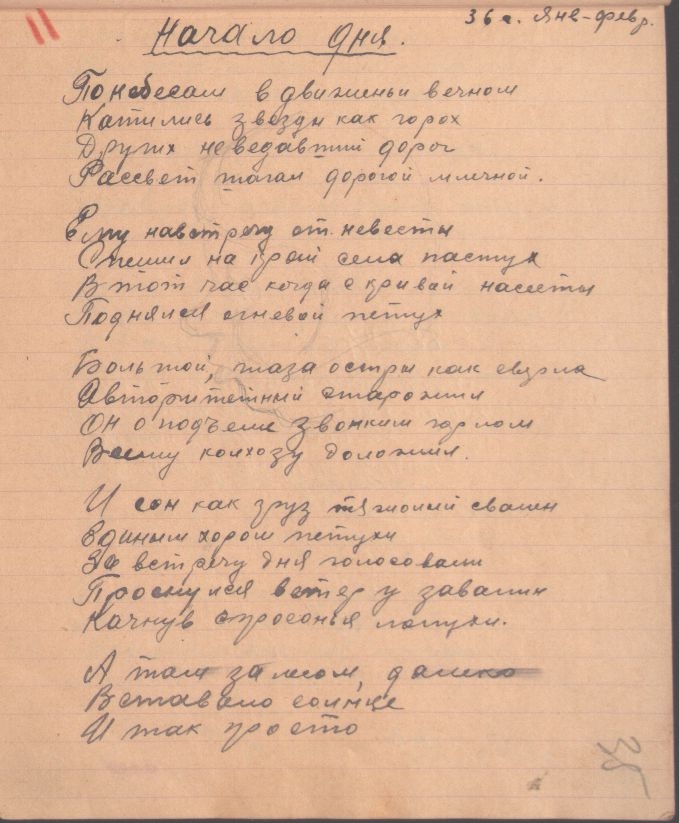 11
36 г. Янв-февр.
Начало дня.
По небесам в движеньи вечном
Катились звезды как горох
Других неведавший дорог
Рассвет шагал дорогой млечной.
Ему навстречу от невесты
Спешил на край села пастух
В тот час когда с кривой насесты
Поднялся огневой петух
Большой, глаза остры как сверла
Авторитетный старожил
Он о подъеме звонким горлом
Всему колхозу доложил.
И сон как груз тяжолый свалив
Единым хором петухи
За встречу дня голосовали
Проснулся ветер у завалин
Качнув спросонья лопухи.
А там за лесом, далеко
Вставало солнце
И так просто
38